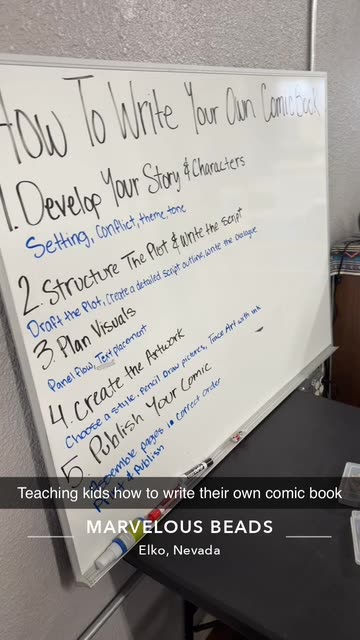 How To Write Your Own Comic Book
1. Develop Your Story & Characters
Setting, Conflict, theme, tone
2. Structure The Plot & Write the Script
Draft the Plot, Create a detailed script outline, write the dialogue
3. Plan Visuals
Panel flow, Text placement
4. Create the Artwork
Choose a style, Pencil Draw pictures, Trace Art with ink
5. Publish Your Comic
Assemble pages in correct order
Print & Publish
Teaching kids how to write their own comic book
MARVELOUS BEADS
Elko, Nevada